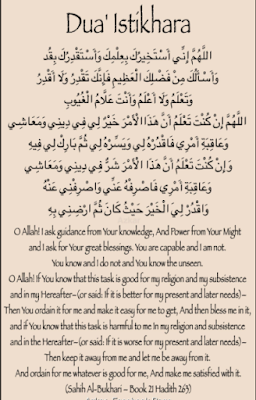 Dua' Istikhara
اللَّهُمَّ إِنِّي أَسْتَخِيرُكَ بِعِلْمِكَ وَأَسْتَقْدِرُكَ بِقُد
وَأَسْأَلُكَ مِنْ فَضْلِكَ الْعَظِيمِ فَإِنَّكَ تَقْدِرُ وَلَا أَقْدِرُ
وَتَعْلَمُ وَلَا أَعْلَمُ وَأَنْتَ عَلَّامُ الْغُيُوبِ
اللَّهُمَّ إِنْ كُنْتَ تَعْلَمُ أَنَّ هَذَا الْأَمْرَ خَيْرٌ لِي فِي دِينِي وَمَعَاشِي
وَعَاقِبَةِ أَمْرِي فَاقْدُرْهُ لِي وَيَسِّرْهُ لِي ثُمَّ بَارِكْ لِي فِيهِ
وَإِنْ كُنْتَ تَعْلَمُ أَنَّ هَذَا الْأَمْرَ شَرٌّ فِي دِينِي وَمَعَاشِي
وَعَاقِبَةِ أَمْرِي فَاصْرِفْهُ عَنِّي وَاصْرِفْنِي عَنْهُ
وَاقْدُرْ لِيَ الْخَيْرَ حَيْثُ كَانَ ثُمَّ ارْضِنِي بِهِ
O Allah! I ask guidance from Your knowledge, And Power from Your Might
and I ask for Your great blessings. You are capable and I am not.
You know and I do not and You know the unseen.
O Allah! If You know that this task is good for my religion and my subsistence
and in my Hereafter–(or said: If it is better for my present and later needs)–
Then You ordain it for me and make it easy for me to get, And then bless me in it,
and if You know that this task is harmful to me In my religion and subsistence
and in the Hereafter–(or said: If it is worse for my present and later needs)–
Then keep it away from me and let me be away from it.
And ordain for me whatever is good for me, And make me satisfied with it.
(Sahih Al-Bukhari – Book 21 Hadith 263)